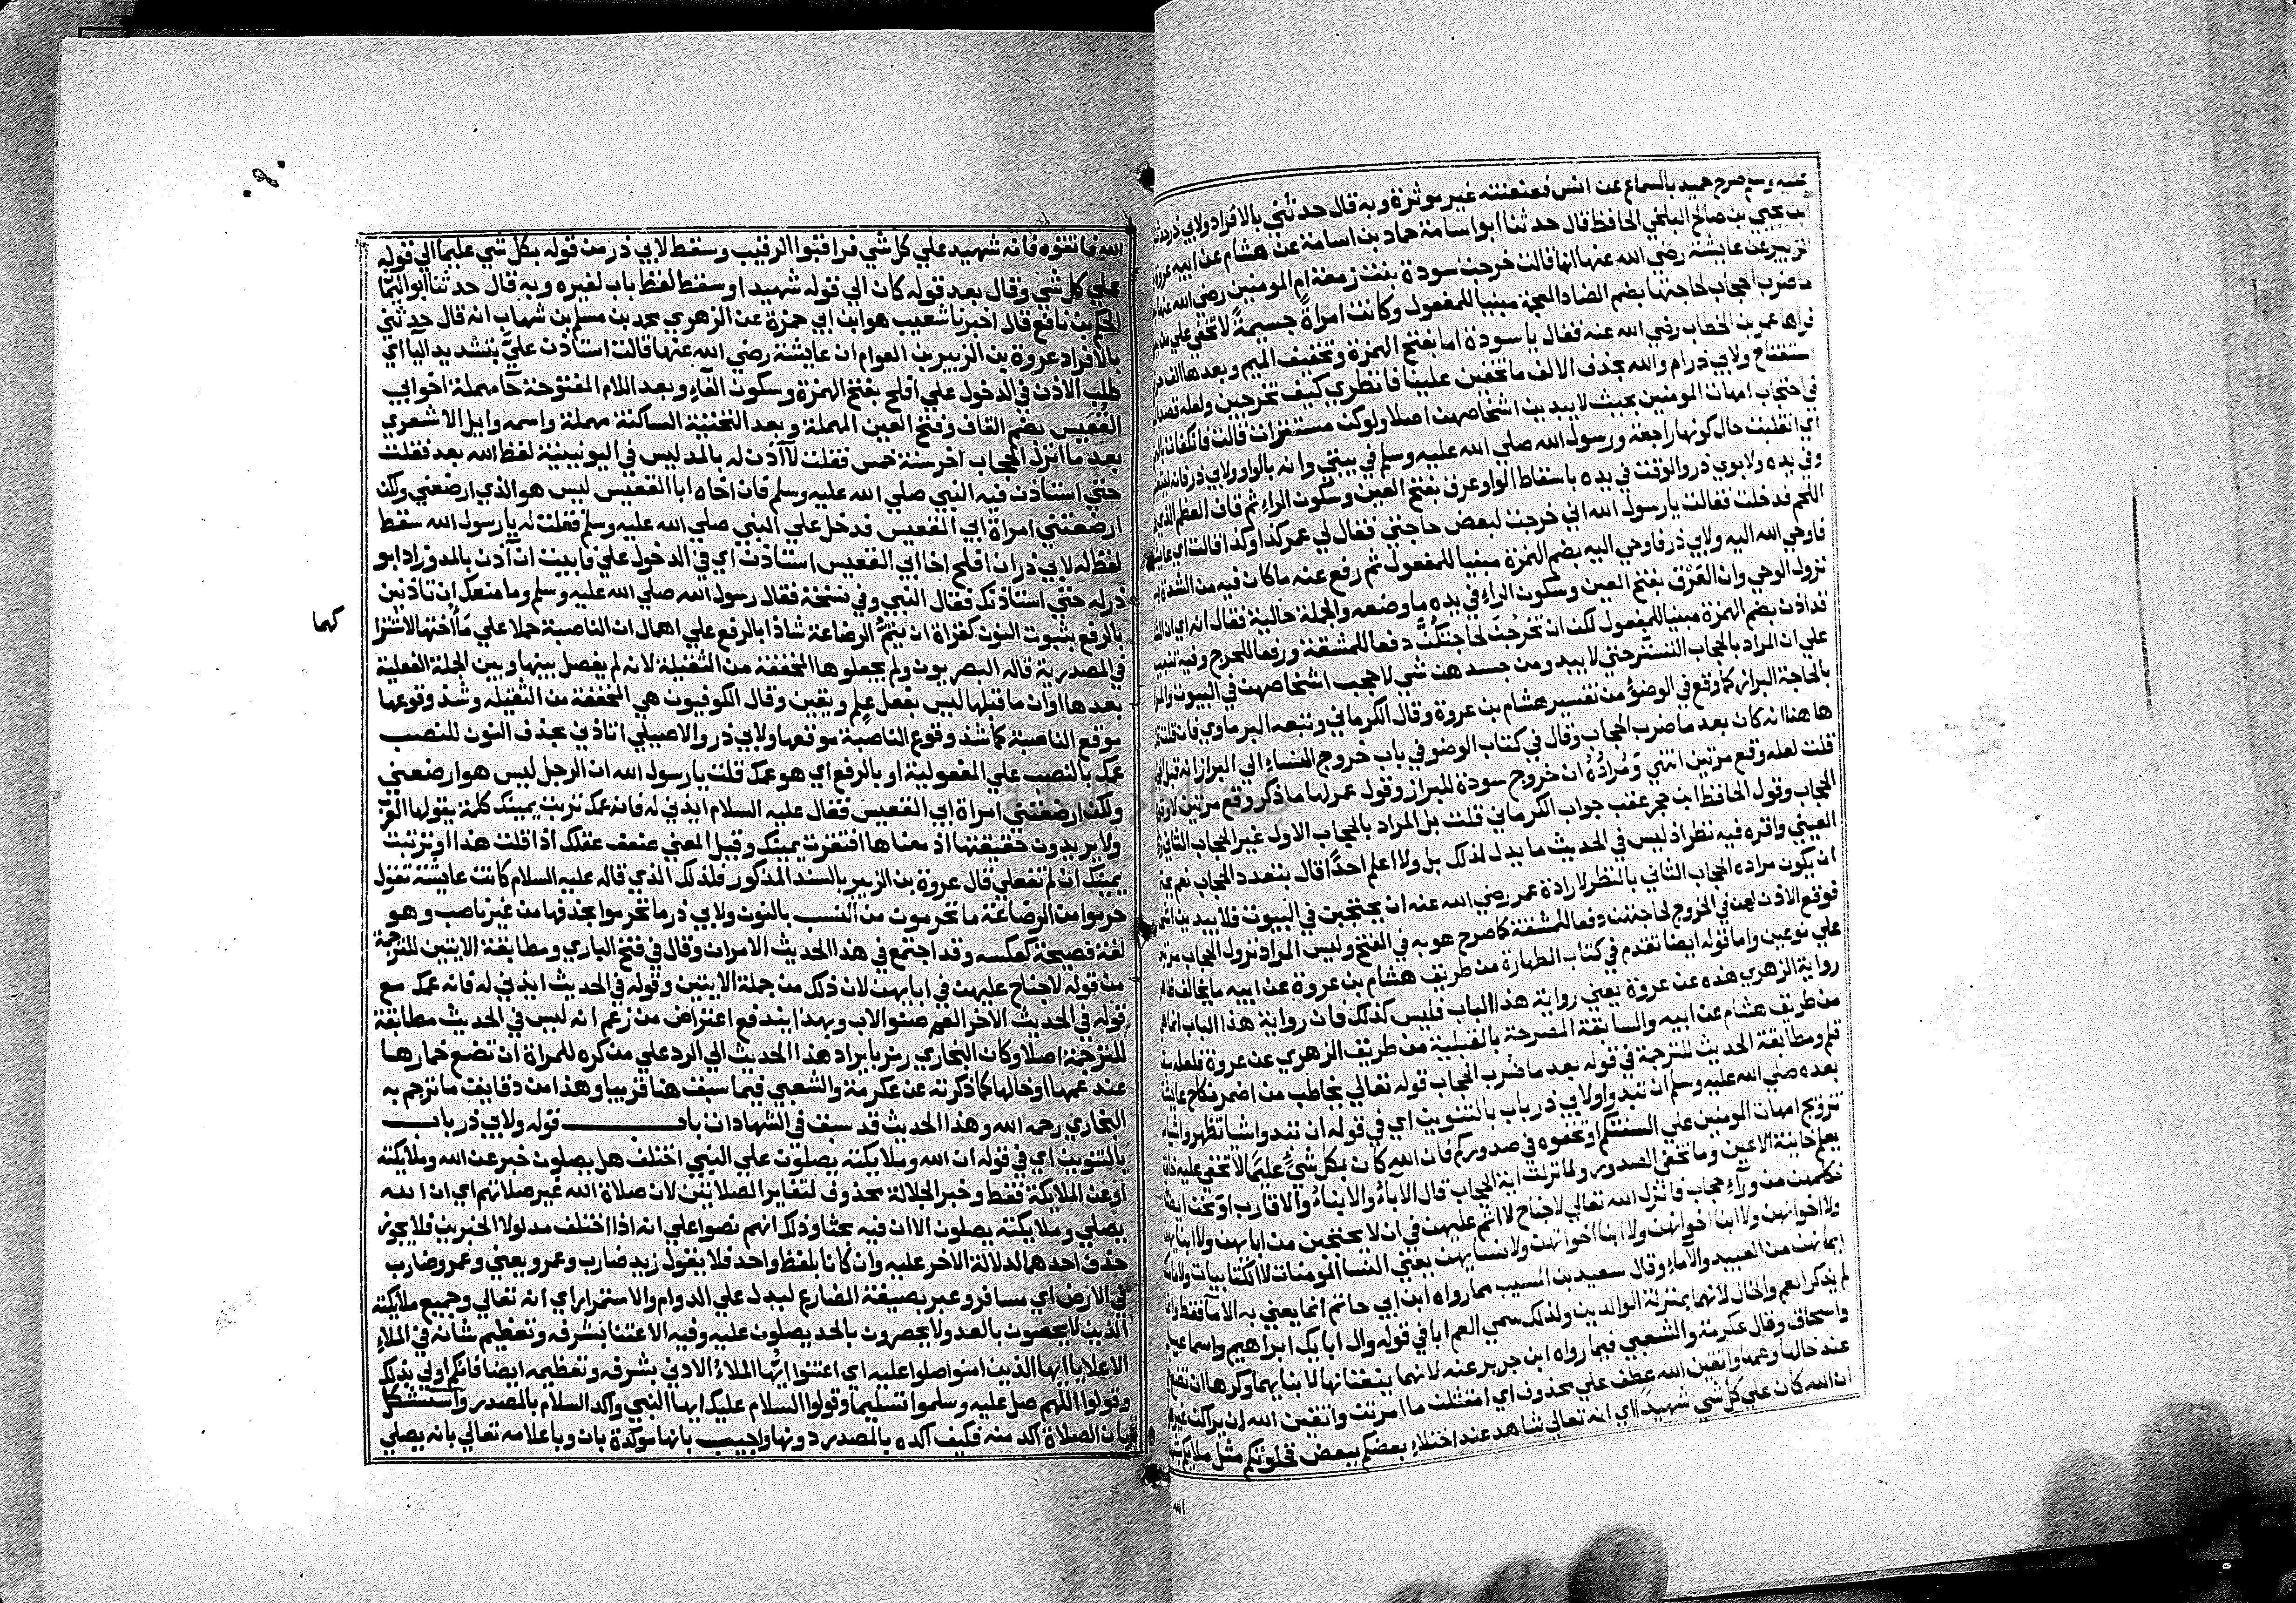 عليه وسلم صرح حميد بالسماع عن انس فعنعنته غير موثرة وبه قال حدثني بالافراد ولابي ذر حدثنا
ابن يحيي بن صالح البلخي الحافظ قال حدثنا ابو اسامة حماد بن اسامة عن هشام عن ابيه عروة
الزبير عن عايشة رضي الله عنها انها قالت خرجت سودة بنت زمعة ام المومنين رضي الله عنها
ما ضرب الحجاب لحاجتها بضم الضاد المعجمة مبنيا للمفعول وكانت امراة جسيمة لا تخفي علي من
فراها عمر بن الخطاب رضي الله عنه فقال يا سودة اما بفتح الهمزة وتخفيف الميم وبعدها الف
استفتاح ولابي ذر ام والله بحذف الالف ما تخفين علينا فانظري كيف تخرجين ولعله قصد
في احتجاب امهات المومنين بحيث لا يبدين اشخاصهن اصلا ولو كن مستترات قالت فانكفات
اي انقلبت حال كونها راجعة ورسول الله صلي الله عليه وسلم في بيتي وانه بالواو ولابي ذر فانه ليتعشي
وفي يده ولابوي ذر والوقت في يده باسقاط الواو عرق بفتح العين وسكون الراء ثم قاف العظم الذي
اللحم فدخلت فقالت يا رسول الله اني خرجت لبعض حاجتي فقال لي عمر كذا وكذا قالت اي عايشة
فاوحي الله اليه ولابي ذر فاوحي اليه بضم الهمزة مبنيا للمفعول ثم رفع عنه ما كان فيه من الشدة
نزول الوحي وان العرق بفتح العين وسكون الراء في يده ما وضعه والجملة حالية فقال انه اي ان
قد اذن بضم الهمزة مبنيا للمفعول لكن ان تخرجن لحاجتكن دفعا للمشقة ورفعا للحرج وفيه تنبيه
علي ان المراد بالحجاب التستر حتي لا يبدو من جسدهن شي لا حجب اشخاصهن في البيوت والمراد
بالحاجة البراز كما وقع في الوضوء من تفسير هشام بن عروة وقال الكرماني وتبعه البرماوي فان قلت
هاهنا انه كان بعد ما ضرب الحجاب وقال في كتاب الوضو في باب خروج النساء الي البراز انه قبل
قلت لعله وقع مرتين انتهي ومراده ان خروج سودة للبراز وقول عمر لها ما ذكر وقع مرتين لا وقوع
الحجاب وقول الحافظ ابن حجر عقب جواب الكرماني قلت بل المراد بالحجاب الاول غير الحجاب الثاني
العيني واقره فيه نظر اذ ليس في الحديث ما يدل لذلك بل ولا اعلم احدا قال بتعدد الحجاب نعم
ان يكون مراده الحجاب الثاني بالنظر لارادة عمر رضي الله عنه ان يحتجبن في البيوت فلا يبدين
فوقع الاذن لهن في الخروج لحاجتهن دفعا للمشقة كما صرح هو به في الفتح وليس المراد نزول الحجاب
علي نوعين واما قوله ايضا تقدم في كتاب الطهارة من طريق هشام بن عروة عن ابيه ما يخالف
رواية الزهري هذه عن عروة يعني رواية هذا الباب فليس كذلك فان رواية هذا الباب انما
من طريق هشام عن ابيه والسابقة المصرحة بالقبلية من طريق الزهري عن عروة فلعله
قلم ومطابقة الحديث للترجمة في قوله بعد ما ضرب الحجاب قوله تعالي يخاطب من اضمر نكاح عايشة
بعده صلي الله عليه وسلم ان تبدوا ولابي ذر باب بالتنوين اي في قوله ان تبدوا شيا تظهروا
تزويج امهات المومنين علي السنتكم او تخفوه في صدوركم فان الله كان بكل شي عليما لا تخفي عليه
يعلم خاينة الاعين وما تخفي الصدور ولما نزلت اية الحجاب قال الاباء والابناء والاقارب او نحن ايضا
نكلمهن من وراء حجاب فانزل الله تعالي لا جناح لا اثم عليهن في ان لا يحتجبن من ابايهن ولا ابنايهن
ولا اخوانهن ولا ابنا اخوانهن ولا ابنا اخواتهن ولا نسايهن يعني النسا المومنات لا الكتابيات ولا ما ملكت
ايمانهن من العبيد والاماء وقال سعيد بن المسيب مما رواه ابن ابي حاتم انما يعني به الاما فقط
لم يذكر العم والخال لانهما بمنزلة الوالدين ولذلك سمي العم ابا في قوله واله ابايك ابراهيم واسماعيل
واسحاق وقال عكرمة والشعبي فيما رواه ابن جرير عنه لانهما ينعتانها لابنايهما وكرها ان تضع
عند خالها وعمها واتقين الله عطف علي محذوف اي امتثلن ما امرتن واتقين الله ان يراكن غير
ان الله كان علي كل شي شهيدا اي انه تعالي شاهد عند اختلاء بعضكم ببعض فخلوتكم مثل ملايكم
الله فاتقوه فانه شهيد علي كل شي فراقبوا الرقيب وسقط لابي ذر من قوله بكل شي عليما الي قوله
علي كل شي وقال بعد قوله كان الي قوله شهيدا وسقط لفظ باب لغيره وبه قال حدثنا ابو اليمان
الحكم بن نافع قال اخبرنا شعيب هو ابن ابي حمزة عن الزهري محمد بن مسلم بن شهاب انه قال حدثني
بالافراد عروة بن الزبير بن العوام ان عايشة رضي الله عنها قالت استاذن علي بتشديد اليا اي
طلب الاذن في الدخول علي افلح بفتح الهمزة وسكون الفاء وبعد اللام المفتوحة حا مهملة اخو ابي
القعيس بضم القاف وفتح العين المهملة وبعد التحتية الساكنة مهملة واسمه وايل الاشعري
بعد ما انزل الحجاب اخر سنة خمس فقلت لا آذن له بالمد ليس في اليونينية لفظ الله بعد فقلت
حتي استاذن فيه النبي صلي الله عليه وسلم فان اخاه ابا القعيس ليس هو الذي ارضعني ولكن
ارضعتني امراة ابي القعيس فدخل علي النبي صلي الله عليه وسلم فقلت له يا رسول الله سقط
لفظ له لابي ذر ان افلح اخا ابي القعيس استاذن اي في الدخول علي فابيت ان آذن بالمد وزاد ابو
ذر له حتي استاذنك فقال النبي وفي نسخة فقال رسول الله صلي الله عليه وسلم وما منعك ان تاذنين
كهما
بالرفع بثبوت النون كقراة ان يتم الرضاعة شاذا بالرفع علي اهمال ان الناصبة حملا علي ما اختها لاشترا
في المصدرية قاله البصريون ولم يجعلوها المخففة من الثقيلة لانه لم يفصل بينها وبين الجملة الفعلية
بعدها او ان ما قبلها ليس بفعل علم ويقين وقال الكوفيون هي المخففة من الثقيلة وشذ وقوعها
موقع الناصبة كما شذ وقوع الناصبة موقعها ولابي ذر والاصيلي ان تاذني بحذف النون للنصب
عمك بالنصب علي المفعولية او بالرفع اي هو عمك قلت يا رسول الله ان الرجل ليس هو ارضعني
ولكن ارضعتني امراة ابي القعيس فقال عليه السلام ايذني له فانه عمك تربت يمينك كلمة يقولها العرب
ولا يريدون حقيقتها اذ معناها افتقرت يمينك وقيل المعني ضعف عقلك اذا قلت هذا او تربت
يمينك ان لم تفعلي قال عروة بن الزبير بالسند المذكور فلذلك الذي قاله عليه السلام كانت عايشة تقول
حرموا من الرضاعة ما تحرمون من النسب بالنون ولابي ذر ما تحرموا بحذفها من غير ناصب وهو
لغة فصيحة كعكسه وقد اجتمع في هذا الحديث الامران وقال في فتح الباري ومطابقة الايتين للترجمة
من قوله لا جناح عليهن في ابايهن لان ذلك من جملة الايتين وقوله في الحديث ايذني له فانه عمك مع
قوله في الحديث الاخر العم صنو الاب وبهذا يندفع اعتراض من زعم انه ليس في الحديث مطابقة
للترجمة اصلا وكان البخاري رمز بايراد هذا الحديث الي الرد علي من كره للمراة ان تضع خمارها
عند عمها او خالها كما ذكرته عن عكرمة والشعبي فيما سبق هنا قريبا وهذا من دقايق ما ترجم به
البخاري رحمه الله وهذا الحديث قد سبق في الشهادات باب قوله ولابي ذر باب
بالتنوين اي في قوله ان الله وملايكته يصلون علي النبي اختلف هل يصلون خبر عن الله وملايكته
او عن الملايكة فقط وخبر الجلالة محذوف لتغاير الصلاتين لان صلاة الله غير صلاتهم اي ان الله
يصلي وملايكته يصلون الا ان فيه بحثا وذلك انهم نصوا علي انه اذا اختلف مدلولا الخبرين فلا يجوز
حذف احدهما لدلالة الاخر عليه وان كانا بلفظ واحد فلا يقول زيد ضارب وعمرو يعني وعمرو ضارب
في الارض اي مسافر وعبر بصيغة المضارع ليدل علي الدوام والاستمرار اي انه تعالي وجميع ملايكته
الذين لا يحصون بالعد ولا يحصرون بالحد يصلون عليه وفيه الاعتنا بشرفه وتعظيم شانه في الملاء
الاعلا يا ايها الذين امنوا صلوا عليه اي اعتنوا ايها الملاء الادني بشرفه وتعظيمه ايضا فانكم اولي بذلك
وقولوا اللهم صل عليه وسلموا تسليما وقولوا السلام عليك ايها النبي واكد السلام بالمصدر واستشكل
بان الصلاة اكد منه فكيف اكده بالمصدر دونها واجيب بانها موكدة بان وباعلامه تعالي بانه يصلي